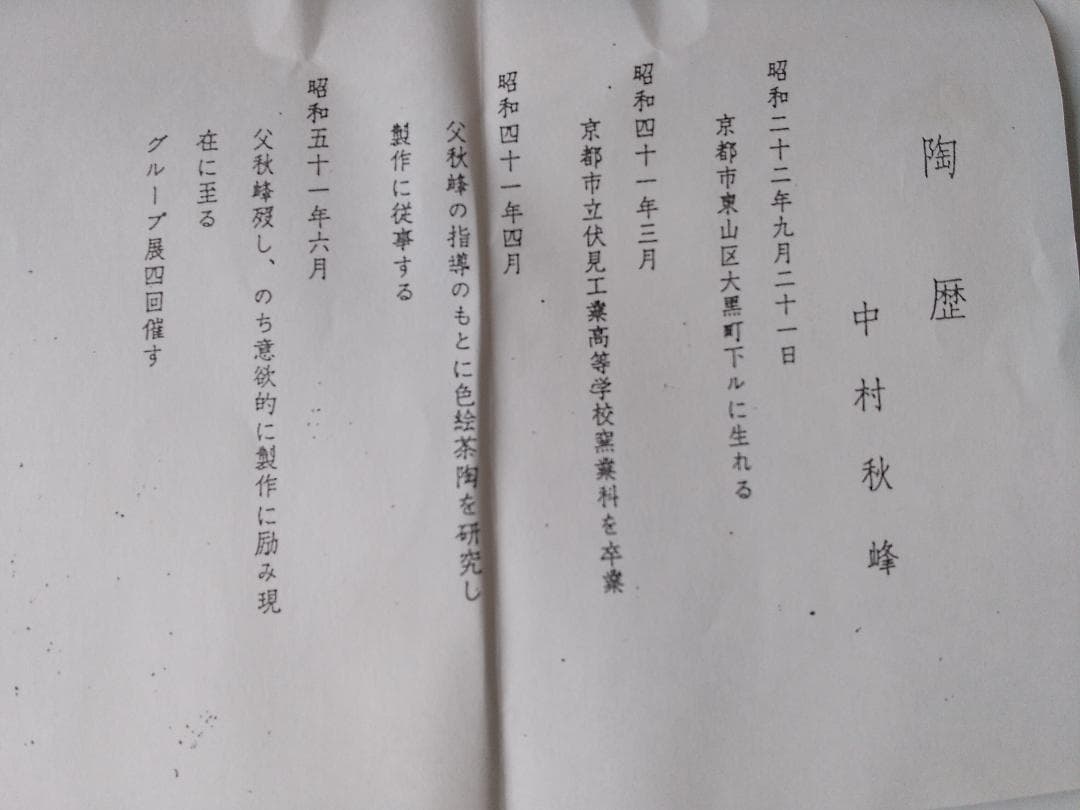 陶歴
中村秋峰
昭和二十二年九月二十一日
京都市東山区大黒町下ルに生れる
昭和四十一年三月
京都市立伏見工業高等学校窯業科を卒業
昭和四十一年四月
父秋峰の指導のもとに色絵茶陶を研究し
製作に従事する
昭和五十一年六月
父秋峰歿し、のち意欲的に製作に励み現
在に至る
グループ展四回催す